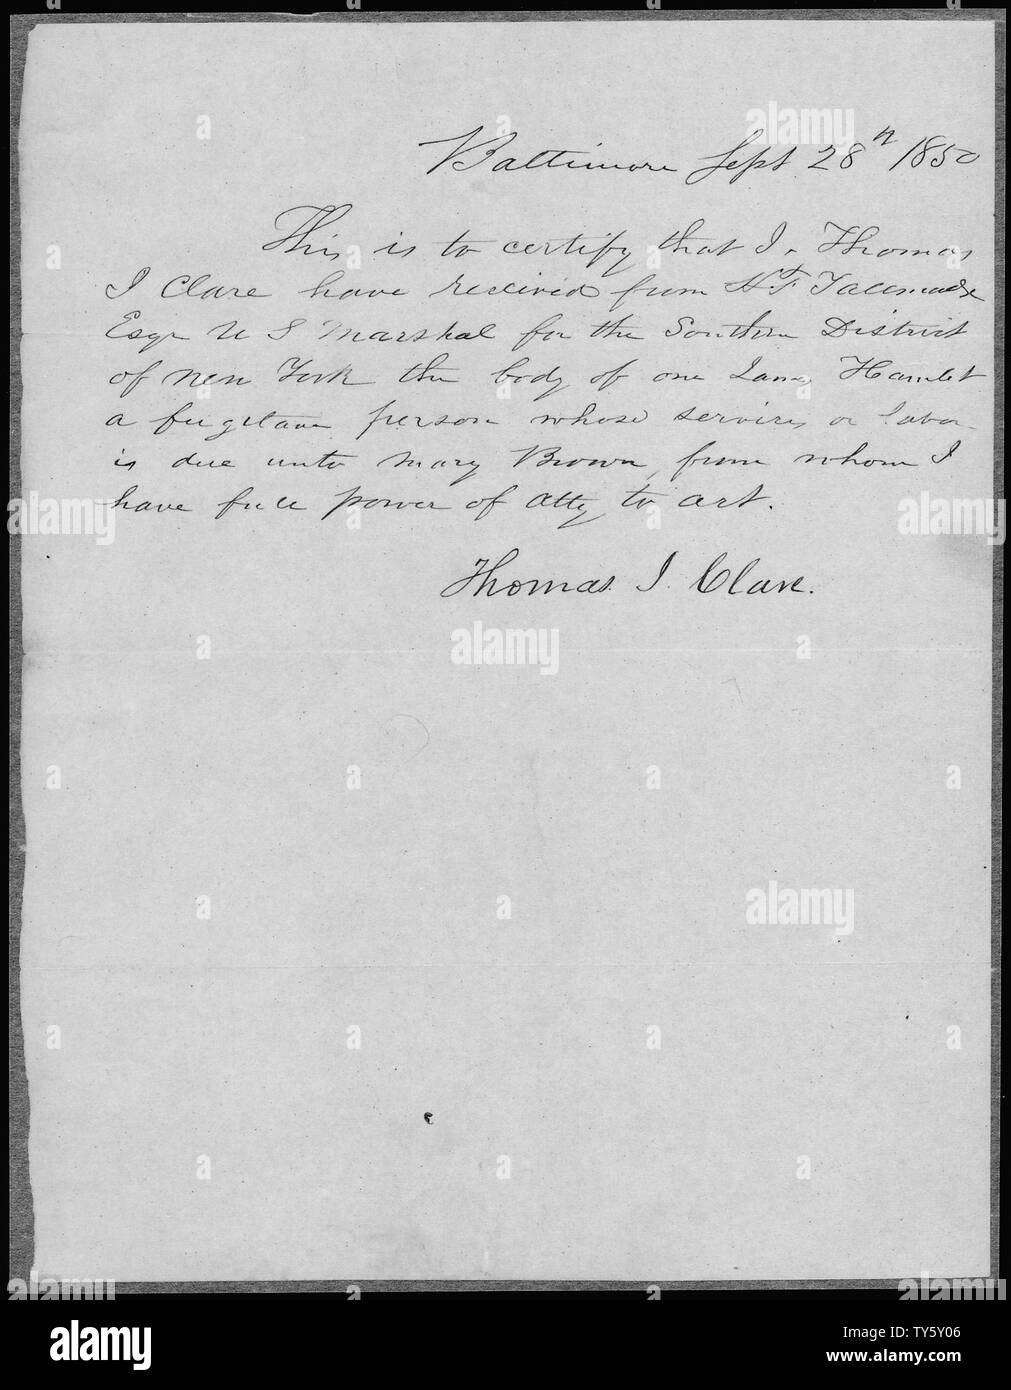 Baltimore Sept 28th 1850
This is to certify that I, Thomas
I Clare have received from H F Tallmadge
Esqr U S Marshal for the Southern District
of New York the body of one James Hamlet
a fugitave person whose services or labor
is due unto Mary Brown, from whom I
have full power of atty to act.
Thomas. I. Clare.
a alamy
alamy
Image ID: TY5Y06
www.alamy.com